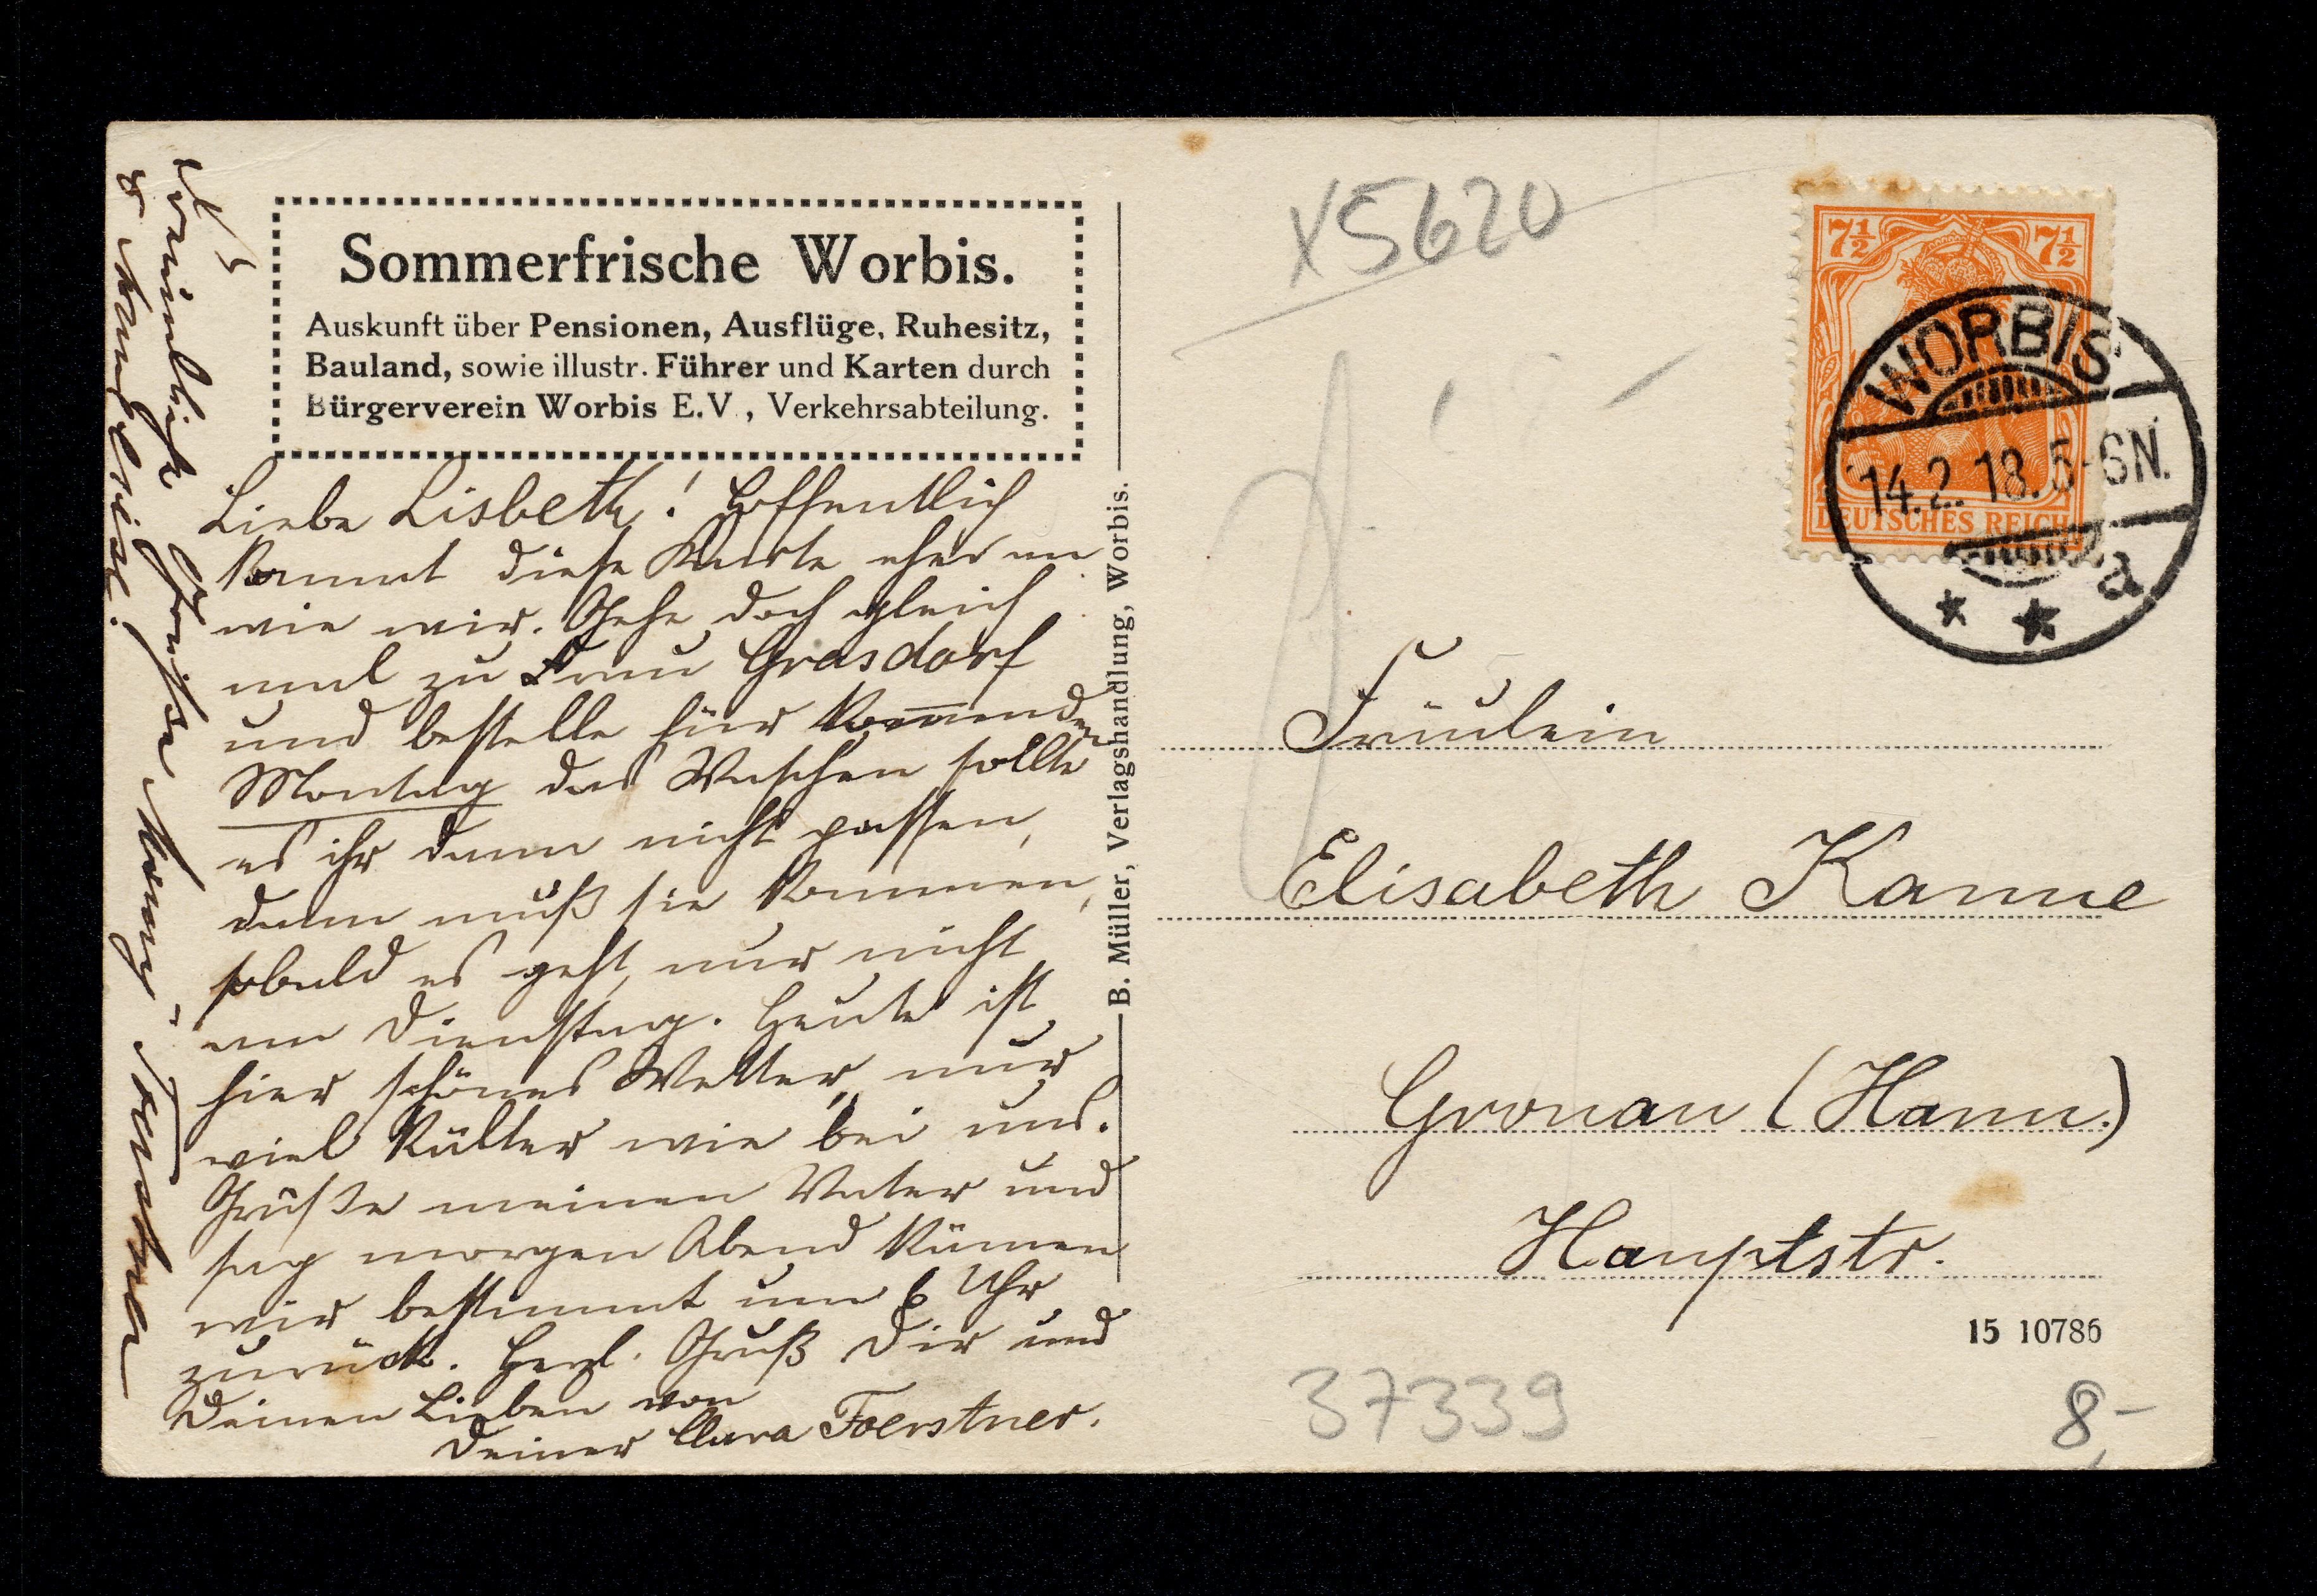 Sommerfrische Worbis.
Auskunft über Pensionen, Ausflüge, Ruhesitz,
Bauland, sowie illustr. Führer und Karten durch
Bürgerverein Worbis E.V., Verkehrsabteilung.
Liebe Lisbeth! Hoffentlich
kommt diese Karte eher an
wie wir. Gehe doch gleich
mal zu Frau Grasdorf
und bestelle für kommenden
Montag das Waschen sollte
es ihr dann nicht passen,
dann muß sie kommen,
sobald es geht, nur nicht
am Dienstag. Heute ist
hier schönes Wetter, nur
viel kälter wie bei uns.
Grüße meinen Vater und
sag morgen Abend kämen
wir bestimmt um 6 Uhr
zurück. Herzl. Gruß Dir und
Deinen Lieben von
Deiner Clara Foerstner.
Freundlich Grüße
B. Müller, Verlagshandlung, Worbis.
X5620
7½ 7½
DEUTSCHES REICH
WORBIS
14.2.18.5-6N.
a
Fräulein
Elisabeth Kanne
Gronau (Hann.)
Hauptstr.
15 10786
37339
8,-